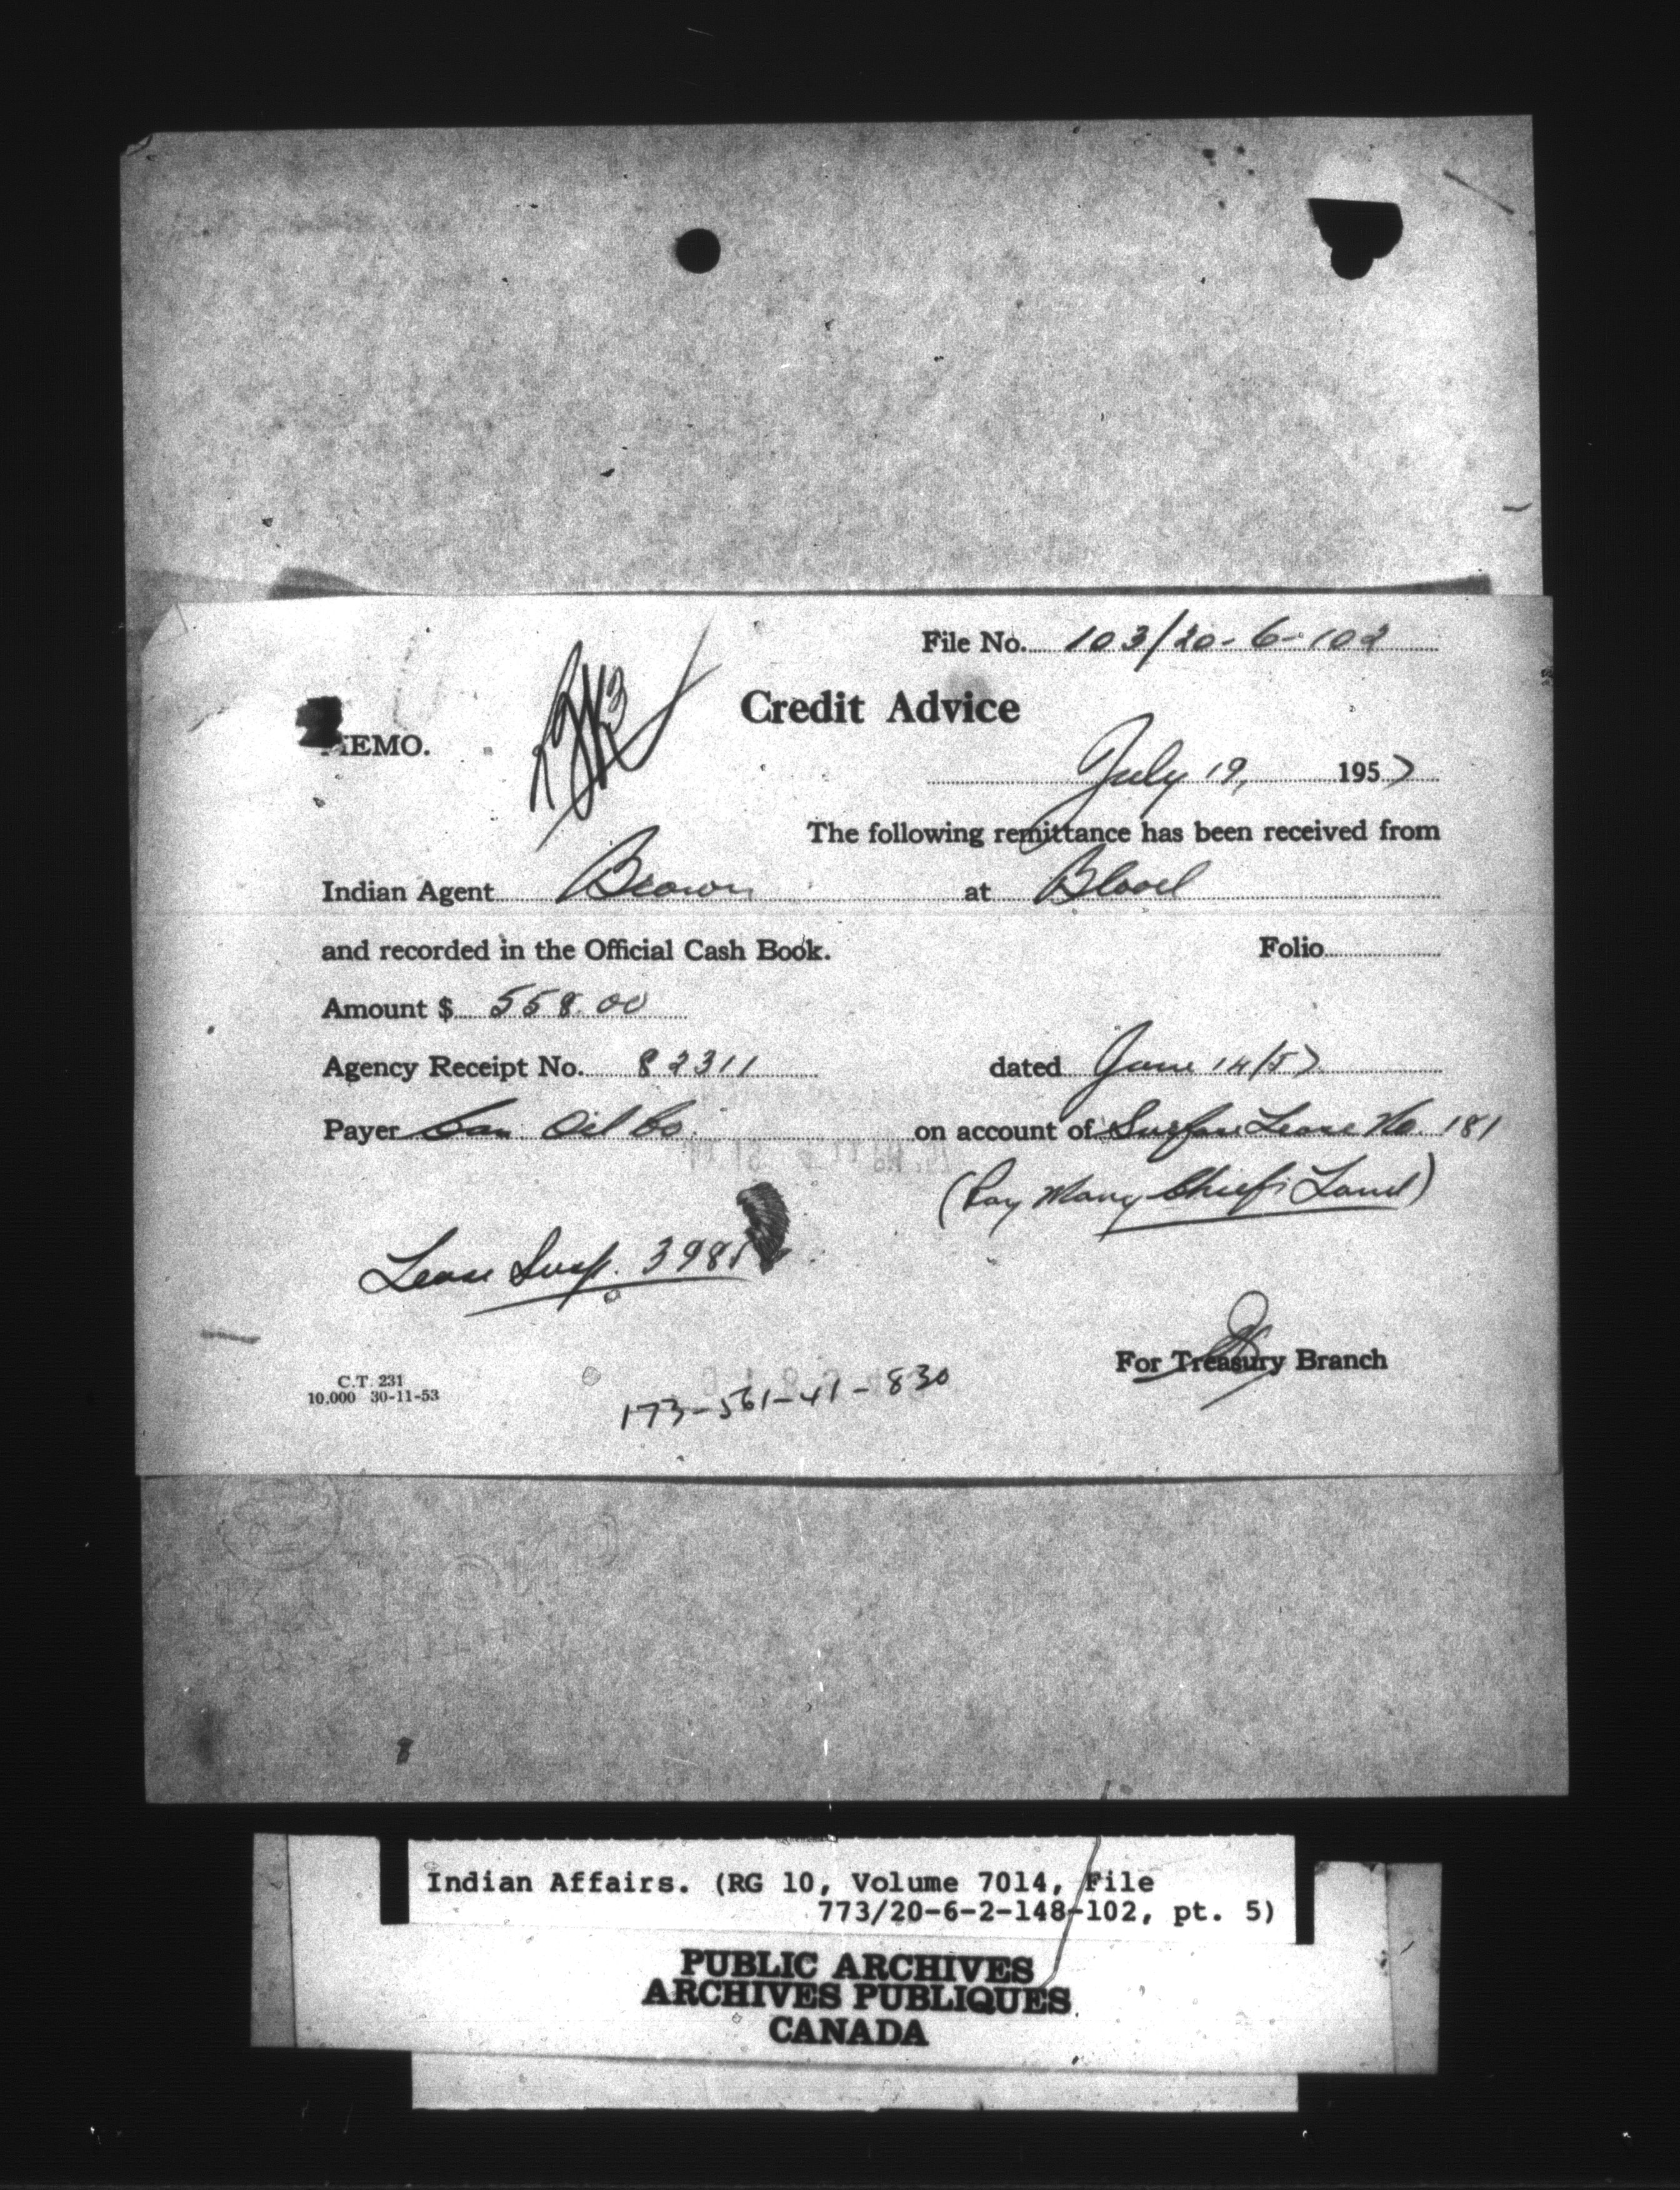 File No. 103/20-6-102
Credit Advice
MEMO.
July 19, 1957
The following remittance has been received from
Indian Agent Brown at Blood
and recorded in the Official Cash Book. Folio
Amount $ 558.00
Agency Receipt No. 82311 dated June 14/57
Payer Can Oil Co. on account of Surface Lease No. 181
(Ray Many Chiefs Land)
Lease Susp. 398
For Treasury Branch
C.T. 231
10,000 30-11-53
173-561-41-830
Indian Affairs. (RG 10, Volume 7014, File
773/20-6-2-148-102, pt. 5)
PUBLIC ARCHIVES
ARCHIVES PUBLIQUES
CANADA